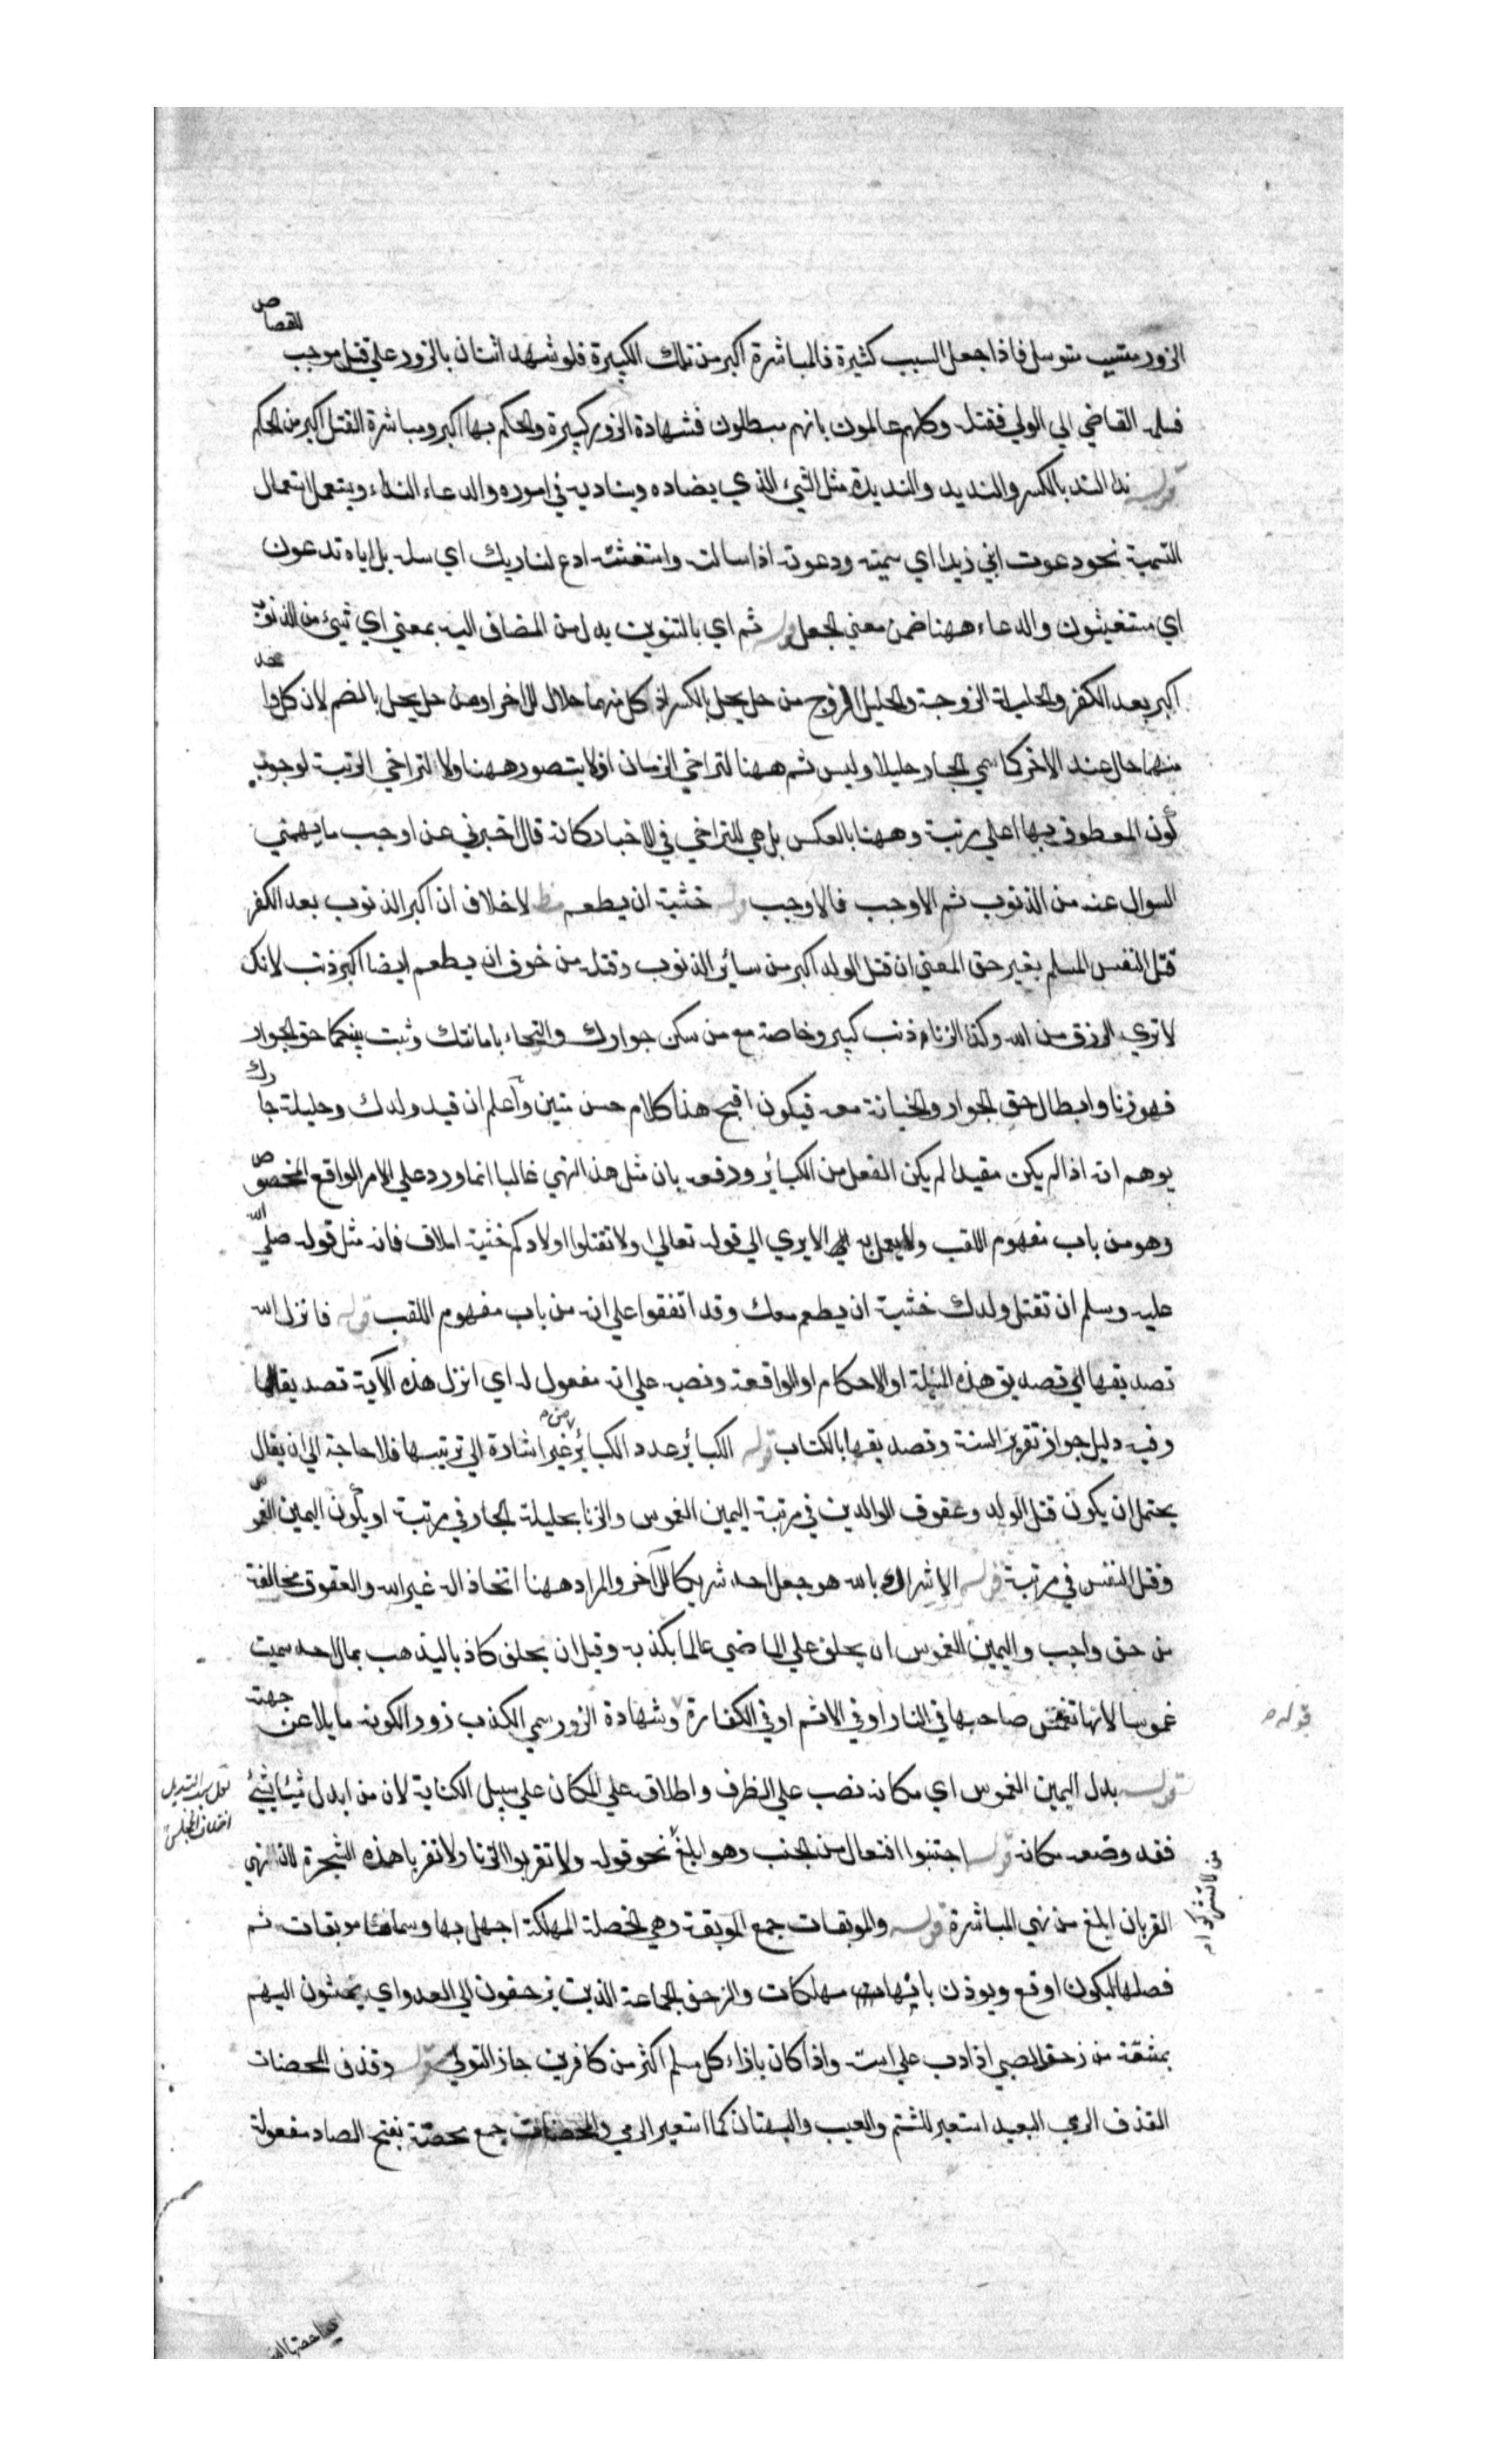 الزور متسبب متوسل فاذا جعل السبب كثيرة فالمباشرة اكبر من تلك الكبيرة فلو شهد اثنان بالزور علي قتل موجب للقصاص
فسلمه القاضي الي الولي فقتله وكلهم عالمون بانهم مبطلون فشهادة الزور كبيرة والحكم بها اكبر ومباشرة القتل اكبر من الحكم
قوله ندا الند بالكسر والنديد والنديدة مثل الشئ الذي يضاده ويناديه في اموره والدعاء النداء ويستعمل استعمال
التسمية نحو دعوت ابني زيدا اي سميته ودعوته اذا سالته واستغثته ادع لنا ربك اي سله بل اياه تدعون
اي تستغيثون والدعاء ههنا ضمن معني الجعل قوله ثم اي بالتنوين بدل من المضاف اليه بمعني اي شيئ من الذنوب
اكبر بعد الكفر والحليلة الزوجة والحليل الزوج من حل يحل بالكسر اذ كل منهما حلال للاخر او من حل يحل بالضم لان كل واحد
منهما حال عند الاخر كما سمي الجار حليلا وليس ثم ههنا لتراخي الزمان اذ لا يتصور ههنا ولا لتراخي الرتبة لوجوب
كون المعطوف بها اعلي مرتبة وههنا بالعكس بل هي للتراخي في الاخبار كانه قال اخبرني عن اوجب ما يهمني
السوال عنه من الذنوب ثم الاوجب فالاوجب قوله خشية ان يطعم مظ لا خلاف ان اكبر الذنوب بعد الكفر
قتل النفس المسلم بغير حق المعني ان قتل الولد اكبر من سائر الذنوب وقتله من خوف ان يطعم ايضا اكبر ذنب لانك
لا تري الرزق من الله وكذا الزنا ذنب كبير وخاصة مع من سكن جوارك والتجاء بامانتك وثبت بينكما حق الجوار
فهو زنا وابطال حق الجوار والخيانة معه فيكون اقبح هذا كلام حسن متين واعلم ان قيد ولدك وحليلة جارك
يوهم انه اذا لم يكن مقيدا لم يكن الفعل من الكبائر ودفعه بان مثل هذا النهي غالبا انما ورد علي الامر الواقع المخصوص
وهو من باب مفهوم اللقب ولا يعمل به الا يري الي قوله تعالي ولا تقتلوا اولادكم خشية املاق فانه مثل قوله صلي الله
عليه وسلم ان تقتل ولدك خشية ان يطعم معك وقد اتفقوا علي انه من باب مفهوم اللقب قوله فانزل الله
تصديقها اي تصديق هذه المسئلة او الاحكام او الواقعة ونصبه علي انه مفعول له اي انزل هذه الآية تصديقا لها
وفيه دليل جواز تقرير السنة وتصديقها بالكتاب قوله الكبائر عدد الكبائر من غير اشارة الي ترتيبها فلا حاجة الي ان يقال
يحتمل ان يكون قتل الولد وعقوق الوالدين في مرتبة اليمين الغموس والزنا بحليلة الجار في مرتبة او يكون اليمين الغموس
وقتل النفس في مرتبة قوله الاشراك بالله هو جعل احد شريكا للآخر والمراد ههنا اتخاذ اله غير الله والعقوق مخالفة
من حق واجب واليمين الغموس ان يحلف علي الماضي عالما بكذبه وقيل ان يحلف كاذبا ليذهب بمال احد سميت
غموسا لانها تغمس صاحبها في النار او في الاثم او في الكفارة وشهادة الزور سمي الكذب زورا لكونه مايلا عن جهته
قوله بدل اليمين الغموس اي مكانه نصب علي الظرف واطلاقه علي المكان علي سبيل الكناية لان من ابدل شيئا بشيئ
فقد وضعه مكانه قوله اجتنبوا افتعال من الجنب وهو ابلغ نحو قوله ولا تقربوا الزنا ولا تقربا هذه الشجرة لان نهي
القربان ابلغ من نهي المباشرة قوله والموبقات جمع الموبقة وهي الخصلة المهلكة اجملها وسماها موبقات ثم
فصلها ليكون اوقع ويوذن بانها مهلكات والزحف الجماعة الذين يزحفون الي العدو اي يمشون اليهم
بمشقة من زحف الصبي اذا دب علي استه واذا كان بازاء كل مسلم اكثر من كافرين جاز التولي قوله وقذف المحصنات
القذف الرمي البعيد استعير للشتم والعيب والبهتان كما استعير الرمي والمحصنات جمع محصنة بفتح الصاد مفعولة
قوله